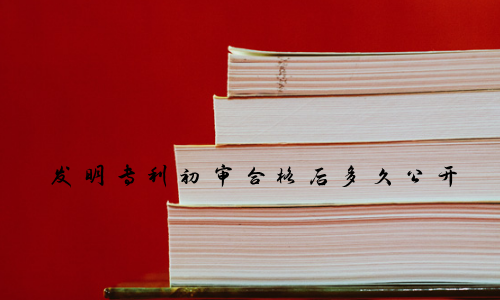 发明专利初审合格后多久公开